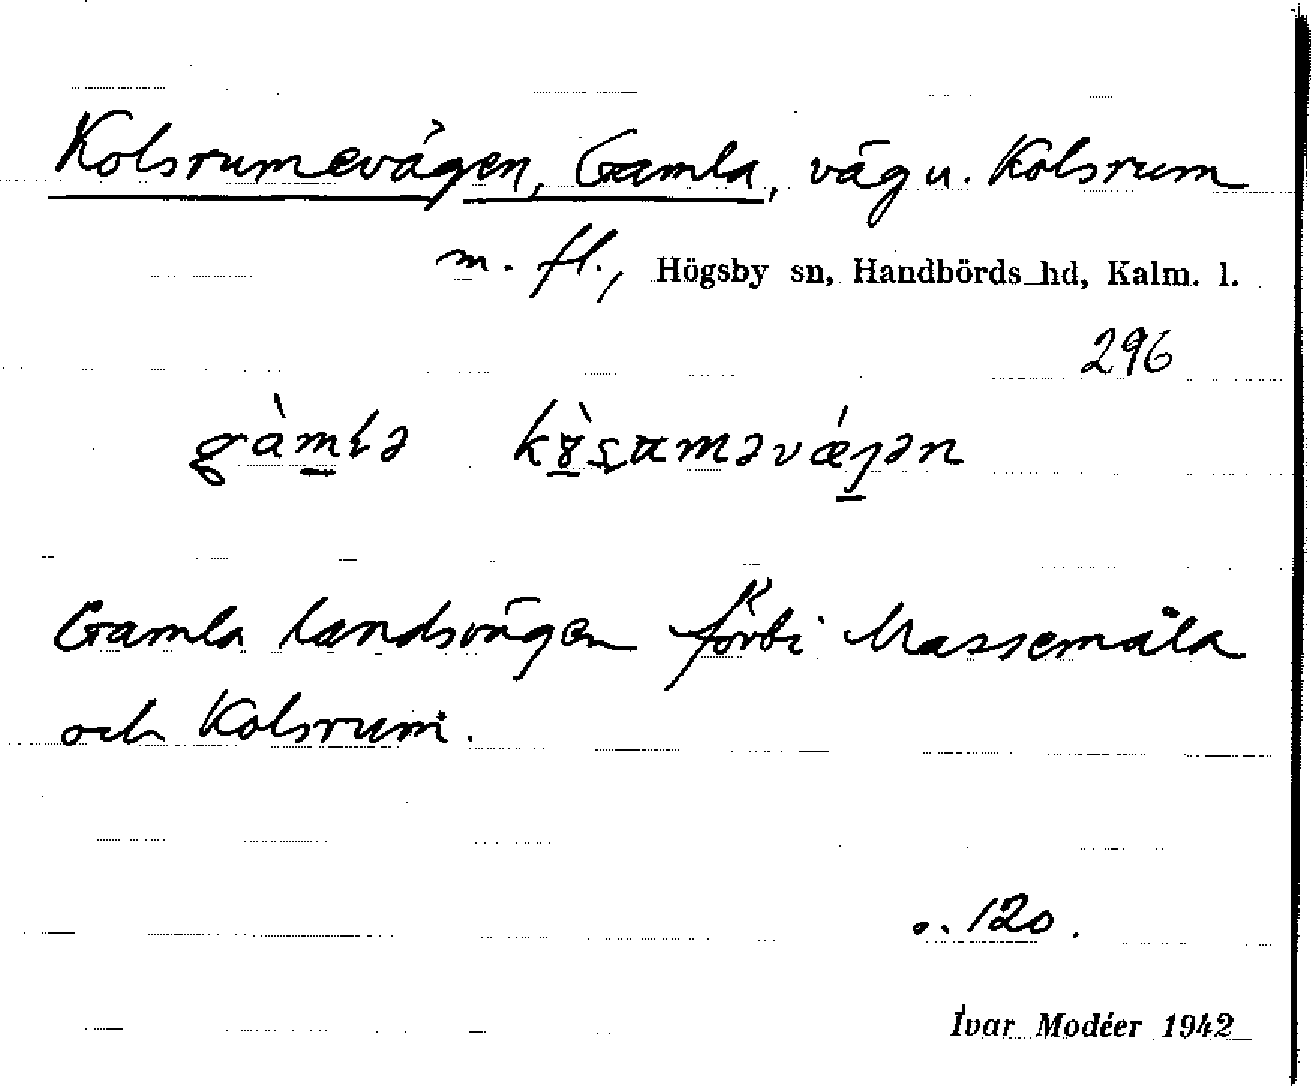 Kolsrumevägen, Gamla, väg u. Kolsrum
m. fl., Högsby sn, Handbörds hd, Kalm. l.
296
Gamla landsvägen förbi Massemåla
och Kolsrum.
o. 120.
Ivar Modéer 1942